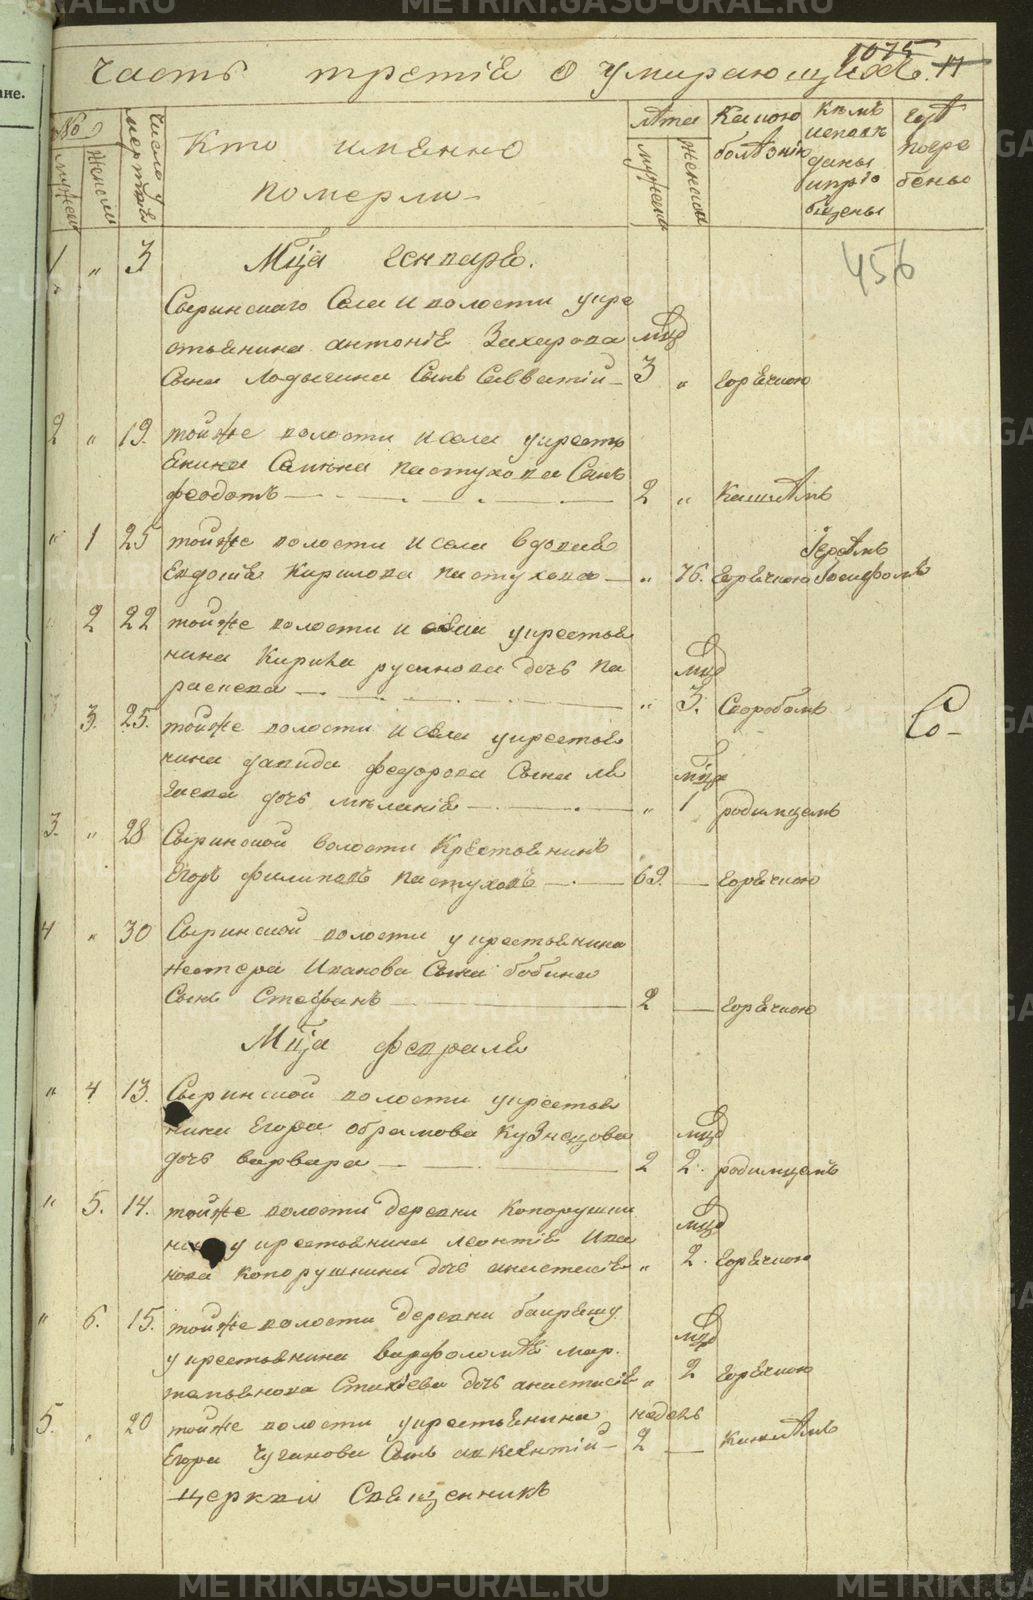 METRIKI.GASU-URAL.RU
Часть третiя о умирающихъ. 11
1075
456
№
мужеск
женски
число умертвiя
Кто именно
померли
лѣта
мужеска
женска
Какою
болѣзнiю
Кѣмъ
исповѣ
даны
и прiо
бщены
гдѣ
погре
бены
Мца Генваря.
1 „ 3
Сыринскаго Села и волости у кре
стьянина антонiя Захарова мцд
сына Лодыгина Сынъ Савватiй 3 „ горячкою
2 „ 19. тойже волости и села у кресть
янина Семена пастухова Сынъ
феодотъ 2 „ Кашлемъ
„ 1 25 тойже волости и села вдова
Iереемъ
Евдокiя Кирилова пастухова „ 76. горячкою Iосифомъ
2 22 тойже волости и села у крестья
нина Кирика русинова дочь па мцд
раскева „ 3. Скороболь
3. 25. тойже волости и села у крестья
нина давида федорова Сына мцд
дочь меланiя „ 1 родимцемъ
Со
3. „ 28 Сыринской волости Крестьянинъ
Егоръ филиповъ пастуховъ 69. — горячкою
4 „ 30 Сыринской волости у крестьянина
нестера Иванова Сына бобина
Сынъ Стефанъ 2 — горячкою
Мца февраля
„ 4 13. Сыринской волости у крестья
нина Егора абрамова Кузнецова мцд
дочь варвара 2 2. родимцемъ
„ 5. 14. тойже волости деревни Копорушки
у крестьянина леонтiя Ива мцд
нова копорушкина дочь анастасiя „ 2. горячкою
„ 6. 15. тойже волости деревни
у крестьянина варфоломѣя мар мцд
темьянова Стахѣева дочь анастасiя „ 2 горячкою
5. „ 20 тойже волости у крестьянина недель
Егора Чуганова Сынъ авксентiй 2 — Кашлемъ
церкви Священникъ
METRIKI.GASU-URAL.RU